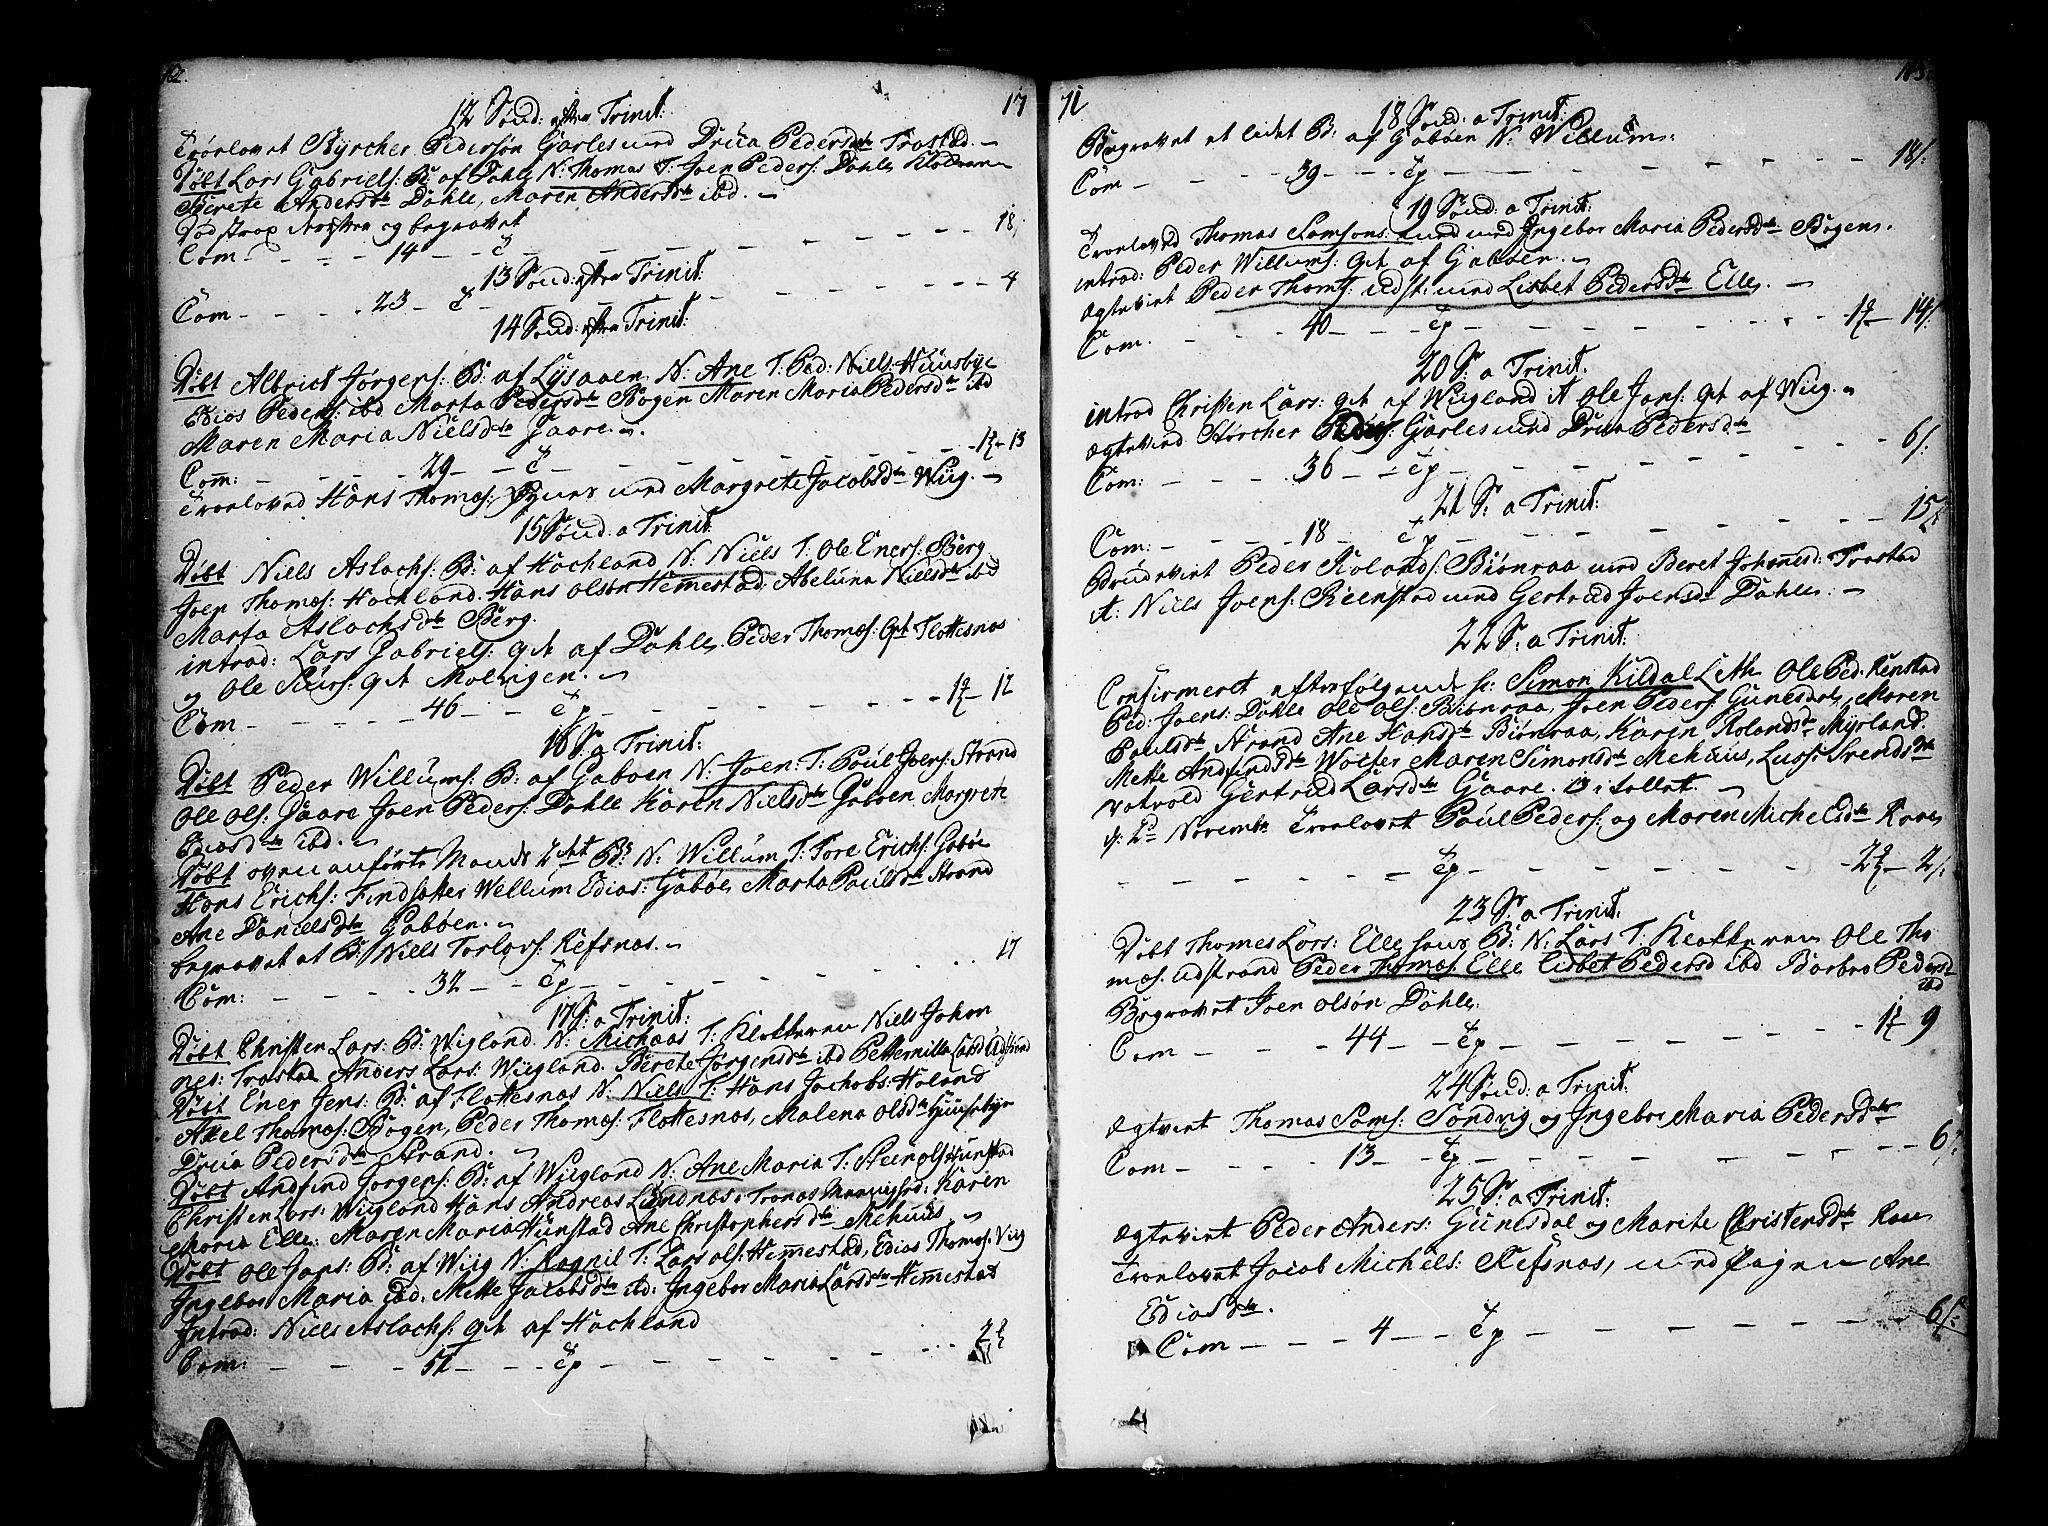 17
12 Sønd: efter Trinit:
Troelovet Byrcher Pedersøn Garles med Drüa Pedersdtr Trastad.
Døbt Lars Gabriels: B: af Dahle N: Thomas T: Joen Peders: Dahle Klokkeren
Berete Andersdtr Dahle, Maren Andersdtr ibd.
og begravet 18
Com 14
13 Sønd: efter Trinit:
Com 23 4
14 Sønd: efter Trinit:
Døbt Albrict Jørgens: B: af Lysaaen N: Ane T: Ped: Niels: Hünsbye
Edias Peders: ibd Marta Pedersdtr Bogen Maren Maria Pedersdtr ibd
Maren Maria Nielsdtr Gaare.
Com: 29 13
Troeloved Hans Thomæs: med Margrete Jacobsdtr Wiig.
15 Sønd: a Trinit:
Døbt Niels Aslachs: B: af Hachland N: Niels T: Ole Eners: Berg
Joen Thomæs: Hachland. Hans Olsøn Hemestad: Abeluna Nielsdtr ibd
Marta Aslachsdtr Berg.
introd: Lars Gabriels: qvt af Dahle. Peder Thomæs: qvt Flottesnæs
og Ole Siürs: qvt Molvigen.
Com 46 12
16 S: a Trinit:
Døbt Peder Willums: B: af Gaboen N: Joen: T: Poül Joens: Strand
Ole Ols: Gaare Joen Peders: Dahle Karen Nielsdtr Gaboen Margrete
Ediasdtr ibd.
Døbt ovenanførte Mands 2det B: N: Willum T: Tore Erichs: Gabøe
Hans Erichs: Findsætter Wellum Edias: Gabøe Marta Paulsdtr Strand
Ane Danielsdtr Gabøen.
begravet et B: Niels Torlofs: Refsnæs.
Com: 32 17
17 S: a Trinit:
Døbt Christen Lars: B: Wigland. N: Michaas T: Klokkeren Niels Johan
nes: Trastad Anders Lars: Wiigland. Berete Jørgensdtr ibd Petternilla Larsd Udstrand
Døbt Ener Jens: B: af Flottesnæs N: Niels T: Hans Jachobs: Haland
Axel Thomæs: Bogen, Peder Thomæs: Flottesnæs, Malena Olsdtr Hünsebye
Drüa Pedersdtr Strand.
Døbt Andfind Jorgens: B: af Wiigland N: Ane Maria T: Steen Ols: Hünstad
Christen Lars: Wiigland Hans Andreas Lündnæs: Karen
Maria Elle: Maren Maria Hünstad Ane Christophersdtr Mehuüs
Døbt Ole Jans: B: af Wiig N: Ragnil T: Lars Ols: Hemmestad, Edias Thomæs: Viig
Ingebor Maria ibd: Mette Jacobsdtr ibd: Ingebor Maria Larsdtr Hemmestat
Introd: Niels Aslachs: qvt af Hachland
Com: 52
71
18 S: a Trinit:
Begravet et lidet B: af Gaboen N: Willum:
Com 39 18/:
19 Sønd: a Trinit:
Troeloved Thomas Samsons: med Ingebor Maria Pedersdtr Bogen.
introd: Peder Willums: qvt af Gaboen.
ægteviet Peder Thoms: Udst: med Lisbet Pedersdtr Elle.
Com. 40 14/:
20 S: a Trinit.
introd Christen Lars: qvt af Wiigland it Ole Jans: qvt af Wiig.
ægtevied Børcher Peders: Garles med Drüa Pedersdtr
Com: 36 6/:
21 S: a Trinit:
Com: 18 15/:
Brudeviet Peder Rolands: Biønraa med Beret Johannesd: Trastad
it: Niels Joens: Reenstad med Gertrud Joensdtr Dahle:
22 S: a Trinit:
Confirmeret efterfølgende Simon Kildal Ole Ped: Renstad
Ped: Joens: Dahle Ole Ols: Biønraa, Joen Peders: Gunesdal, Maren
Paulsdtr Strand Ane Hansdtr Biønraa, Karen Rolandsdtr Myrland.
Mette Andfindsdtr Wolfer Maren Simonsdtr Mehuüs, Lusse Svendsdtr
Vatvold Gertrud Larsdtr Gaare. i tallet.
d: 2d Novembr Troelovet Poül Peders: og Maren Michelsdtr Raae
2/:
23 S: a Trinit:
Døbt Thomes Lars: Elle hans B: N: Lars T: Klokkeren Ole Tho
mæs: Udstrand Peder Thomæs: Elle Lisbet Pedersd ibd Barbro Pedersd
ibd
Begravet Joen Olsøn Dahle:
Com 44 9
24 Sønd: a Trinit:
ægteviet Thomas Sams: Sandvig og Ingebor Maria Pedersdtr
Com 13 6/:
25 S: a Trinit:
ægteviet Peder Anders: Gunesdal og Marite Christensdtr Raae
Troelovet Jacob Michels: Refsnæs, med Pigen Ane
Ediasdtr.
Com 4 6/: